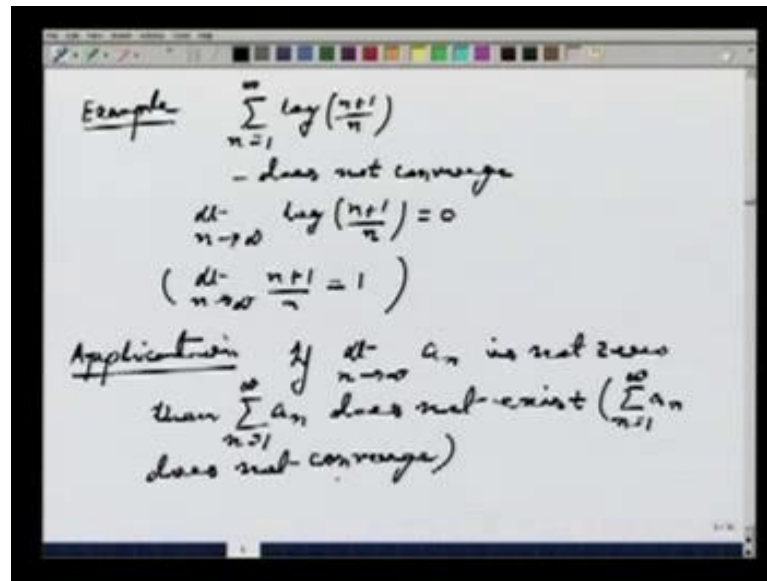 Example ∑_{n=1}^{∞} log((n+1)/n)
- does not converge
lt_{n→∞} log((n+1)/n) = 0
( lt_{n→∞} (n+1)/n = 1 )
Application If lt_{n→∞} a_n is not zero
then ∑_{n=1}^{∞} a_n does not exist ( ∑_{n=1}^{∞} a_n
does not converge)